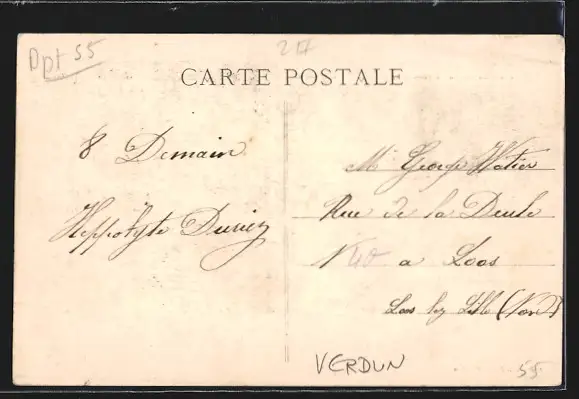 Dpt 55
217
CARTE POSTALE
8 Demain
Hippolyte Duriez
Mr George Watier
Rue de la Deule
N 40 a Loos
Loos lez Lille (Nord)
VERDUN
55